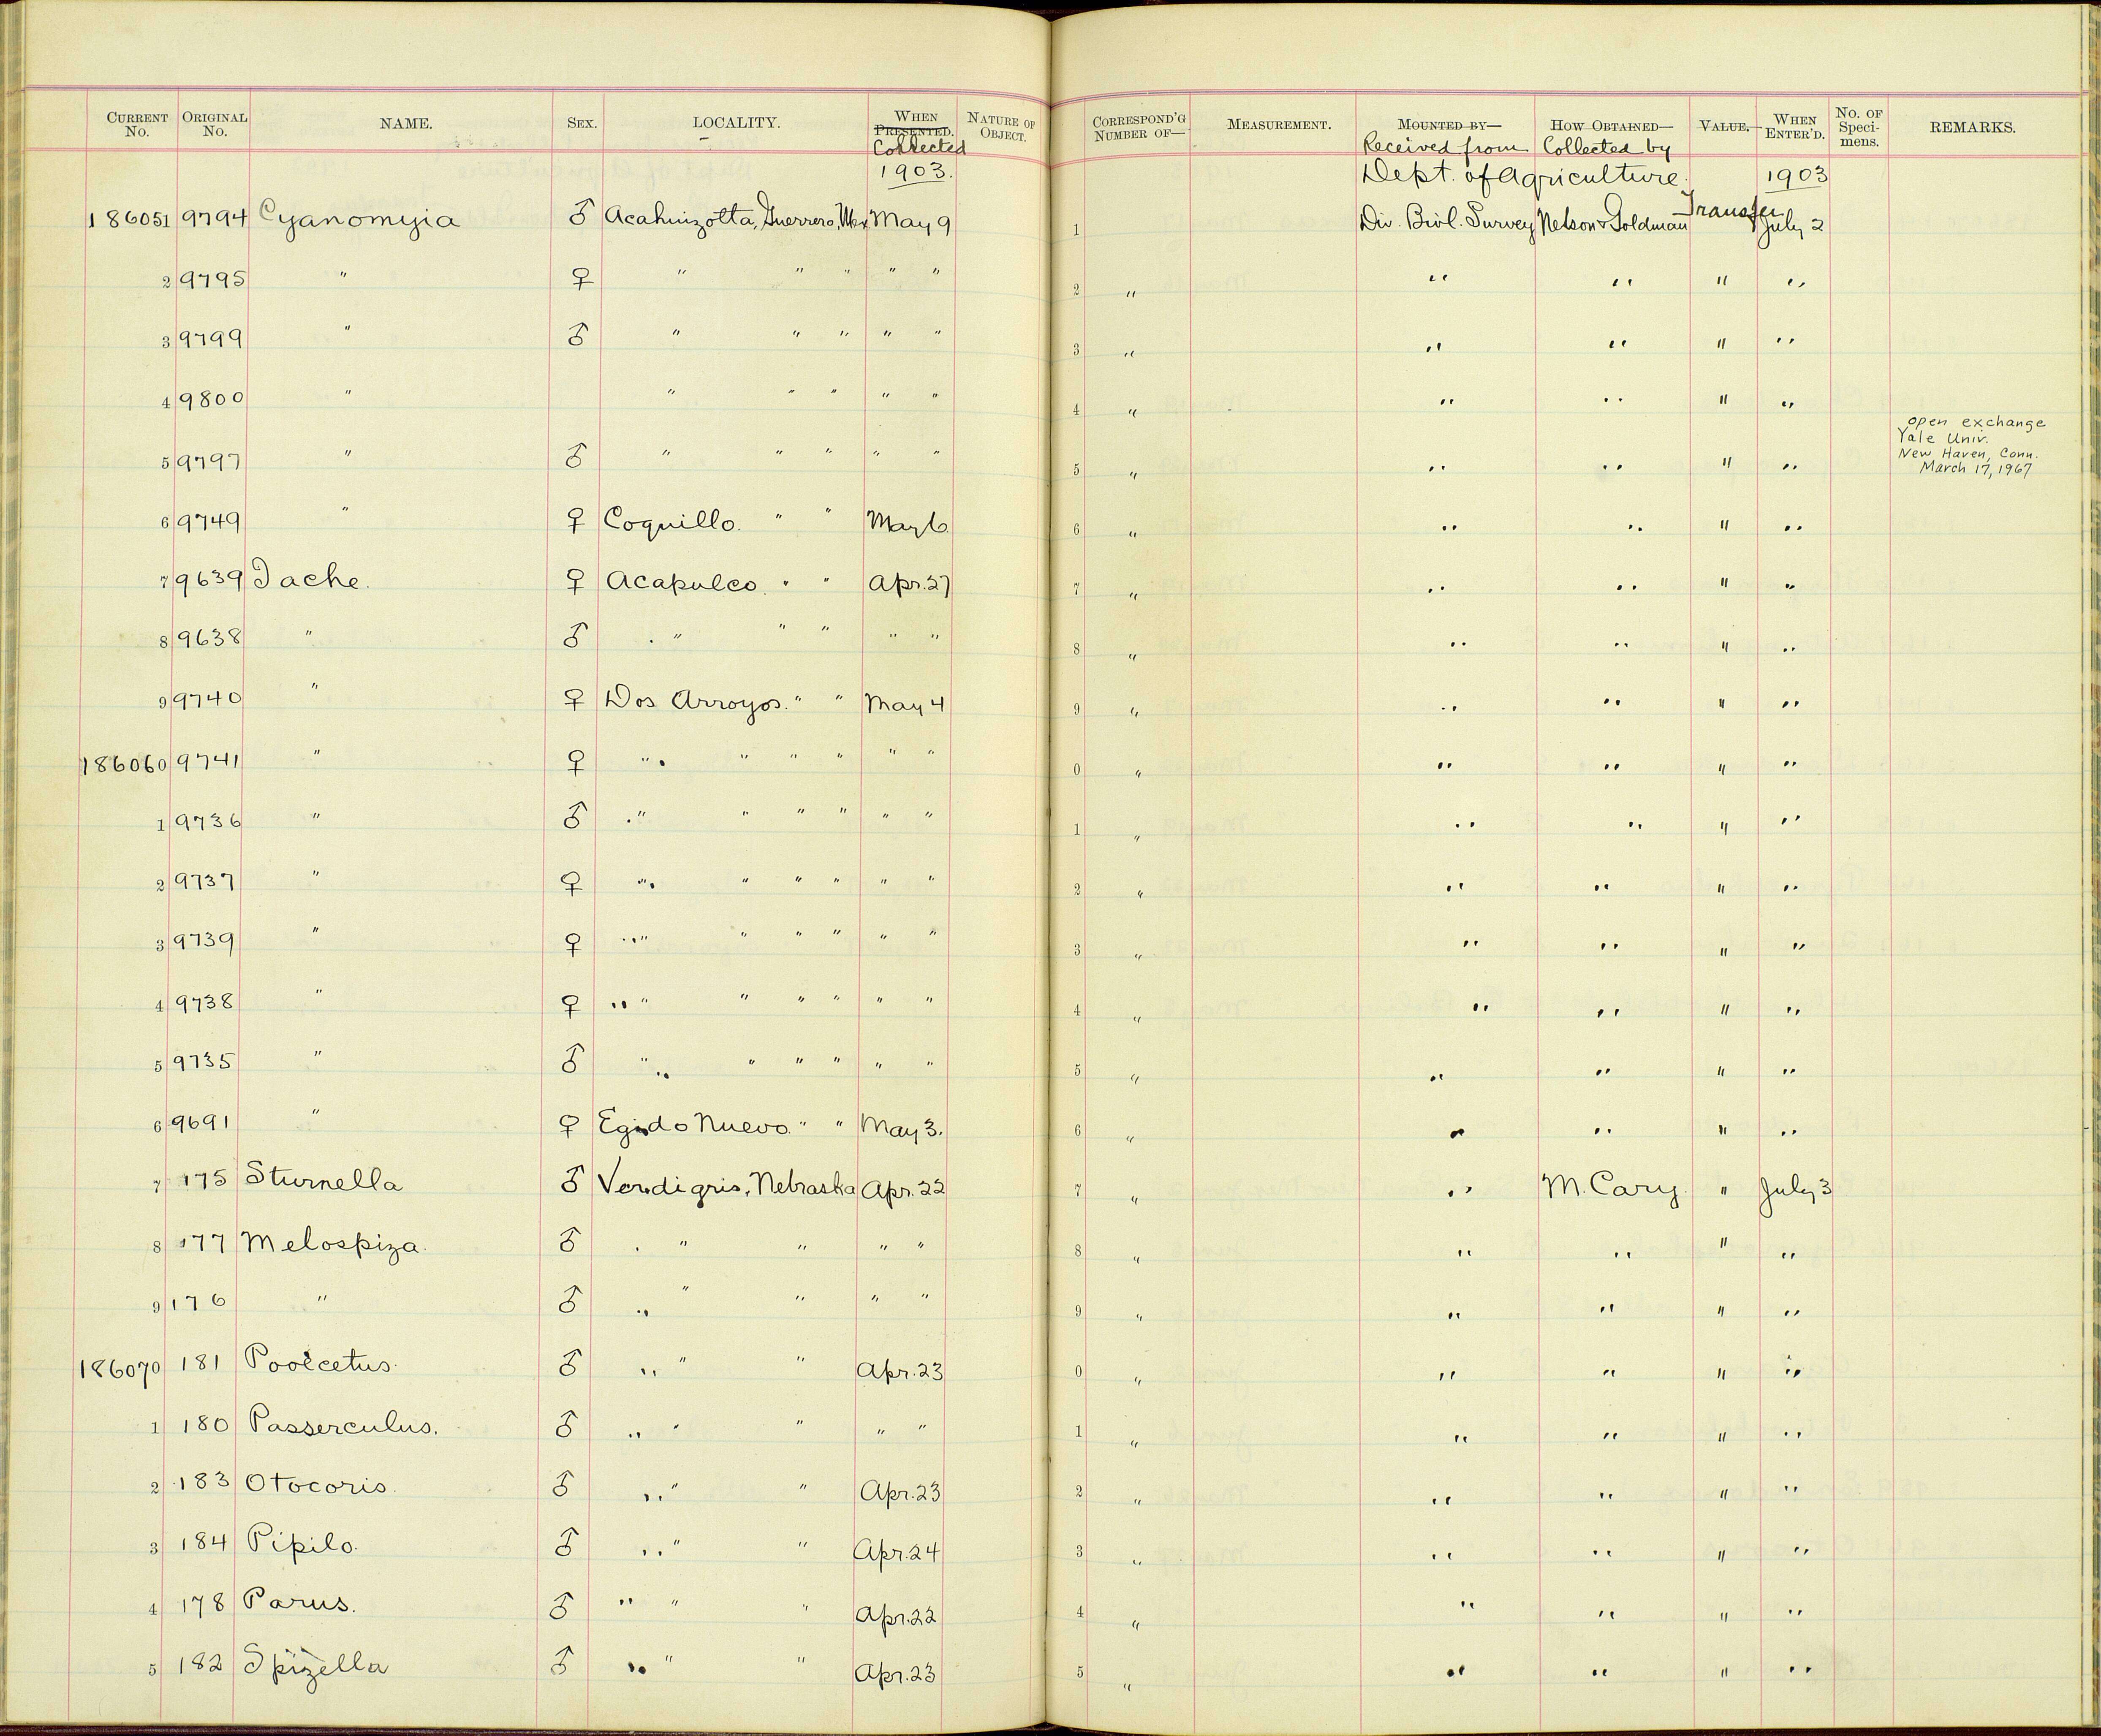 CURRENT No. ORIGINAL No. NAME. SEX. LOCALITY. WHEN PRESENTED. Collected NATURE OF OBJECT. CORRESPOND'G NUMBER OF— MEASUREMENT. MOUNTED BY— Received from HOW OBTAINED— Collected by VALUE. WHEN ENTER'D. No. OF Speci- mens. REMARKS.
1903. Dept. of Agriculture. 1903
186051 9794 Cyanomyia ♂ Acahuizotla, Guerrero, Mex May 9 1 Div. Biol. Survey Nelson & Goldman Transfer July 2
2 9795 " ♀ " " " " " 2 " " " " "
3 9799 " ♂ " " " " " 3 " " " " "
4 9800 " " " " " " 4 " " " " "
5 9797 " ♂ " " " " " 5 " " " " " open exchange
Yale Univ.
New Haven, Conn.
March 17, 1967
6 9749 " ♀ Coquillo. " " May 6 6 " " " " "
7 9639 Iache. ♀ Acapulco. " " Apr. 27 7 " " " " "
8 9638 " ♂ " " " " " 8 " " " " "
9 9740 " ♀ Dos Arroyos. " " May 4 9 " " " " "
186060 9741 " ♀ " " " " " " 0 " " " " "
1 9736 " ♂ " " " " " " 1 " " " " "
2 9737 " ♀ " " " " " " 2 " " " " "
3 9739 " ♀ " " " " " " 3 " " " " "
4 9738 " ♀ " " " " " " 4 " " " " "
5 9735 " ♂ " " " " " " 5 " " " " "
6 9691 " ♀ Egido Nuevo. " " May 3. 6 " " " " "
7 175 Sturnella ♂ Verdigris, Nebraska Apr. 22 7 " " M. Cary. " July 3
8 177 Melospiza. ♂ " " " " 8 " " " " "
9 176 " ♂ " " " " 9 " " " " "
186070 181 Pooecetus. ♂ " " Apr. 23 0 " " " " "
1 180 Passerculus. ♂ " " " " 1 " " " " "
2 183 Otocoris. ♂ " " Apr. 23 2 " " " " "
3 184 Pipilo. ♂ " " Apr. 24 3 " " " " "
4 178 Parus. ♂ " " Apr. 22 4 " " " " "
5 182 Spizella ♂ " " Apr. 23 5 " " " " "